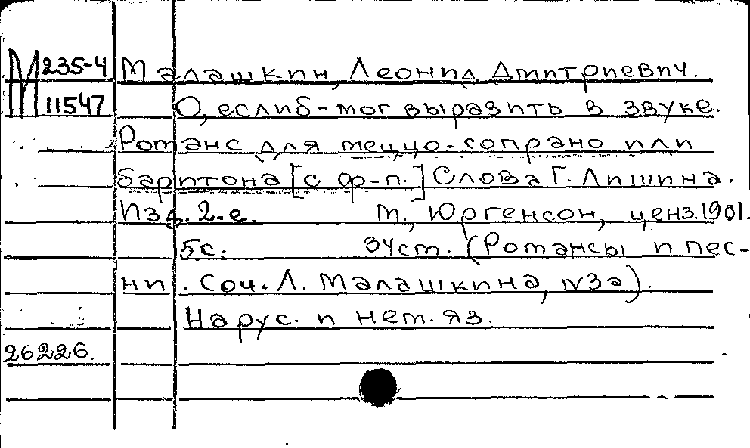 М 235-4 Малашкин, Леонид Дмитриевич.
11547 О, еслиб-мог выразить в звуке.
Романс для меццо-сопрано или
баритона [с ф-п.] Слова Г. Лишина.
Изд. 2-е. М., Юргенсон, ценз.1901.
5с. 34см. (Романсы и пес-
ни. Соч. Л. Малашкина, №3а).
На рус. и нем. яз.
26226.